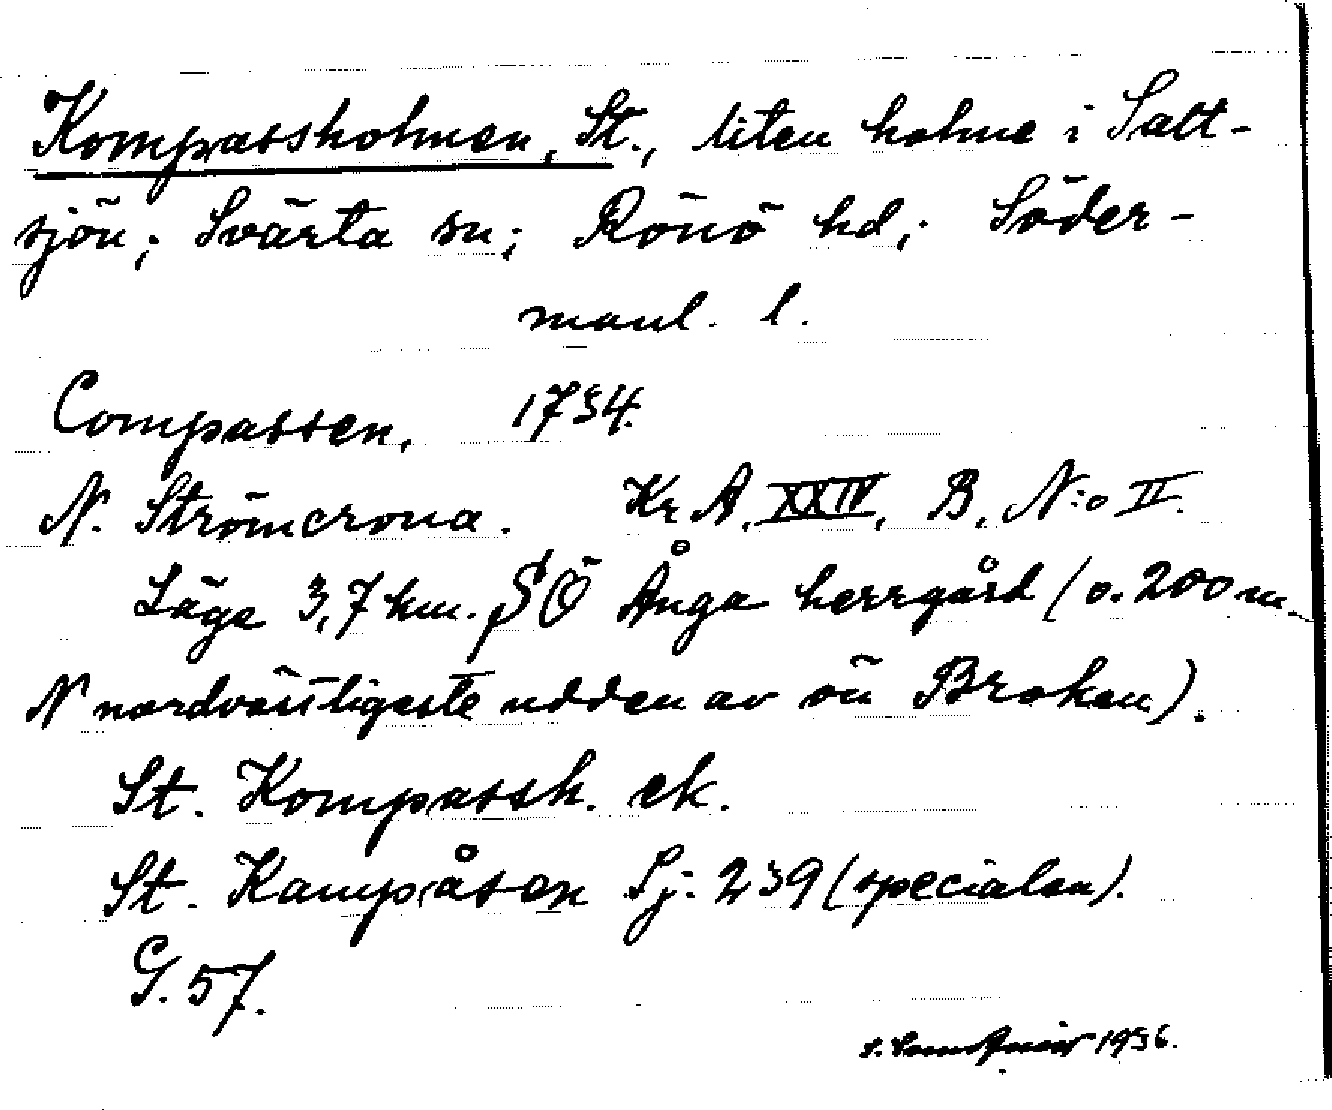 Kompassholmen, St., liten holme i Salt-
sjön; Svärta sn; Rönö hd; Söder-
manl. l.
Compassen, 1734.
N. Strömcrona. Kr. A. XXIV, B, N:o II.
Läge 3,7 km. SÖ Ånga herrgård (o. 200 m.
N nordvästligaste udden av ön Broken).
St. Kompassh. ek.
St. Kampåsen Sj: 239 (specialen).
G. 57.
1936.